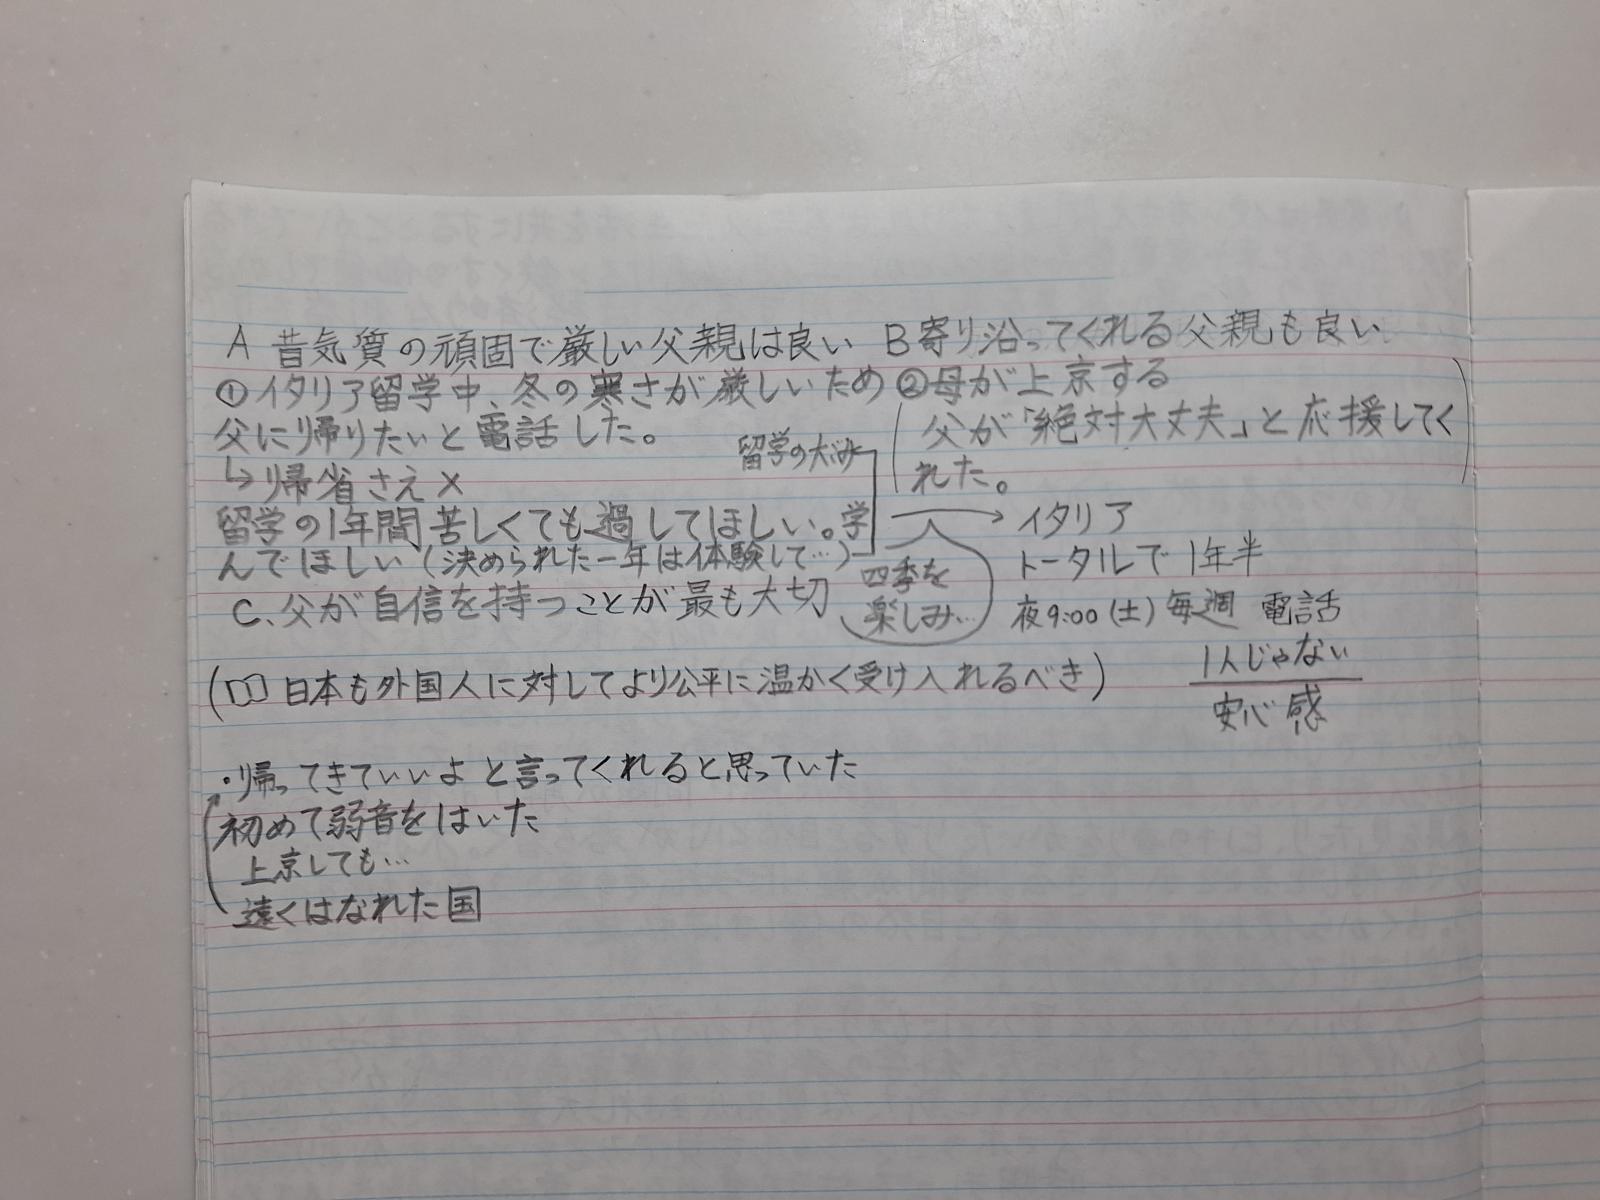 A 昔気質の頑固で厳しい父親は良い B 寄り沿ってくれる父親も良い
①イタリア留学中、冬の寒さが厳しいため ②母が上京する
父に帰りたいと電話した。
(父が「絶対大丈夫」と応援してく
れた。)
↳帰省さえ×
留学の
留学の1年間苦しくても過してほしい。学
んでほしい(決められた一年は体験して…)
→イタリア
トータルで1年半
四季を
楽しみ…
夜9:00(土)毎週 電話
1人じゃない
安心感
C、父が自信を持つことが最も大切
(日本も外国人に対してより公平に温かく受け入れるべき)
・帰ってきていいよと言ってくれると思っていた
初めて弱音をはいた
上京しても…
遠くはなれた国